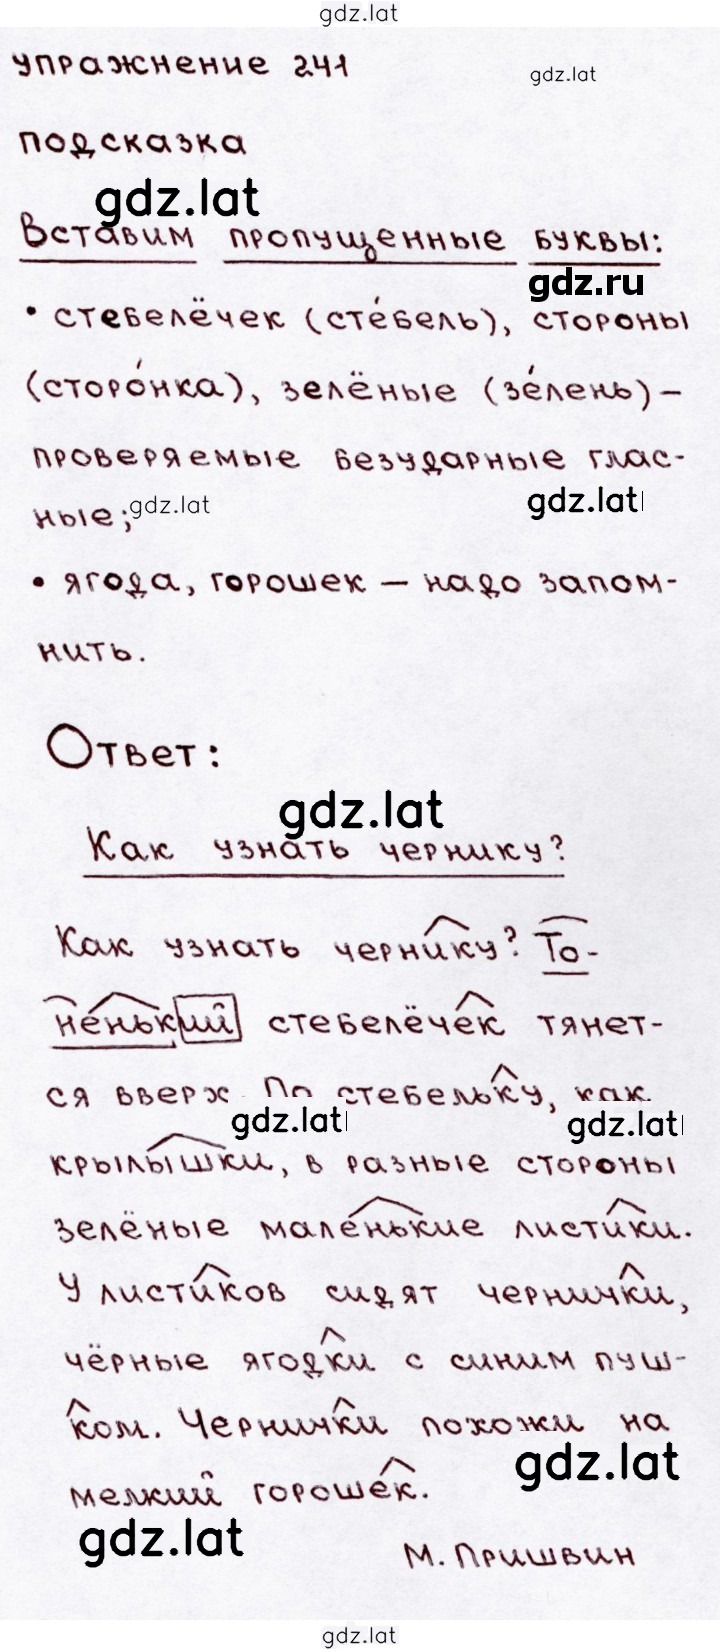 gdz.lat
упражнение 241
gdz.lat
подсказка
gdz.lat
Вставим пропущенные буквы:
gdz.ru
• стебелёчек (сте́бель), стороны
(сторо́нка), зелёные (зе́лень) –
проверяемые безударные глас-
gdz.lat
ные;
gdz.lat
• ягода, горошек – надо запом-
нить.
Ответ:
gdz.lat
Как узнать чернику?
Как узнать чернику? То-
ненький стебелёчек тянет-
ся вверх. По стебельку, как
gdz.lat
gdz.lat
крылышки, в разные стороны
зелёные маленькие листики.
У листиков сидят чернички,
чёрные ягодки с синим пуш-
ком. Чернички похожи на
gdz.lat
мелкий горошек.
gdz.lat
М. Пришвин
gdz.lat